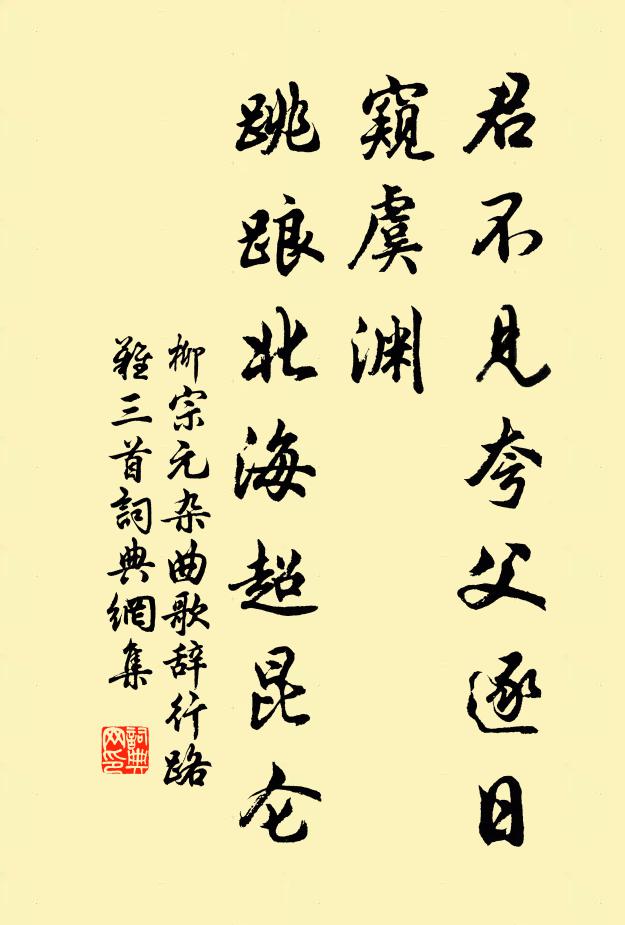 君不见夸父逐日
窥虞渊
跳踉北海超昆仑
柳宗元杂曲歌辞行路
難三首詞典網集
詞典网印